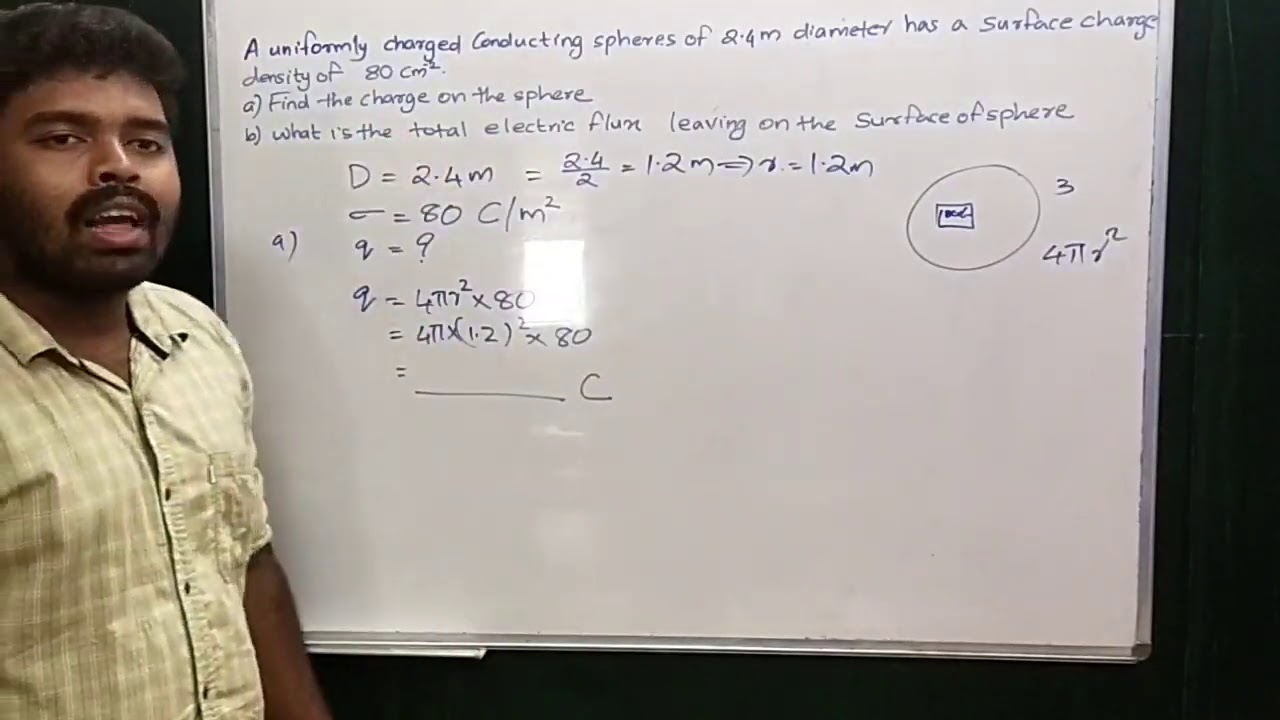 A uniformly charged Conducting spheres of 2.4m diameter has a surface charge
density of 80 cm².
a) Find the charge on the sphere
b) what is the total electric flux leaving on the surface of sphere
D = 2.4m = 2.4/2 = 1.2m ⇒ r = 1.2m
σ = 80 C/m²
a) q = ?
q = 4πr² × 80
= 4π×(1.2)² × 80
= ______ C
3
4πr²